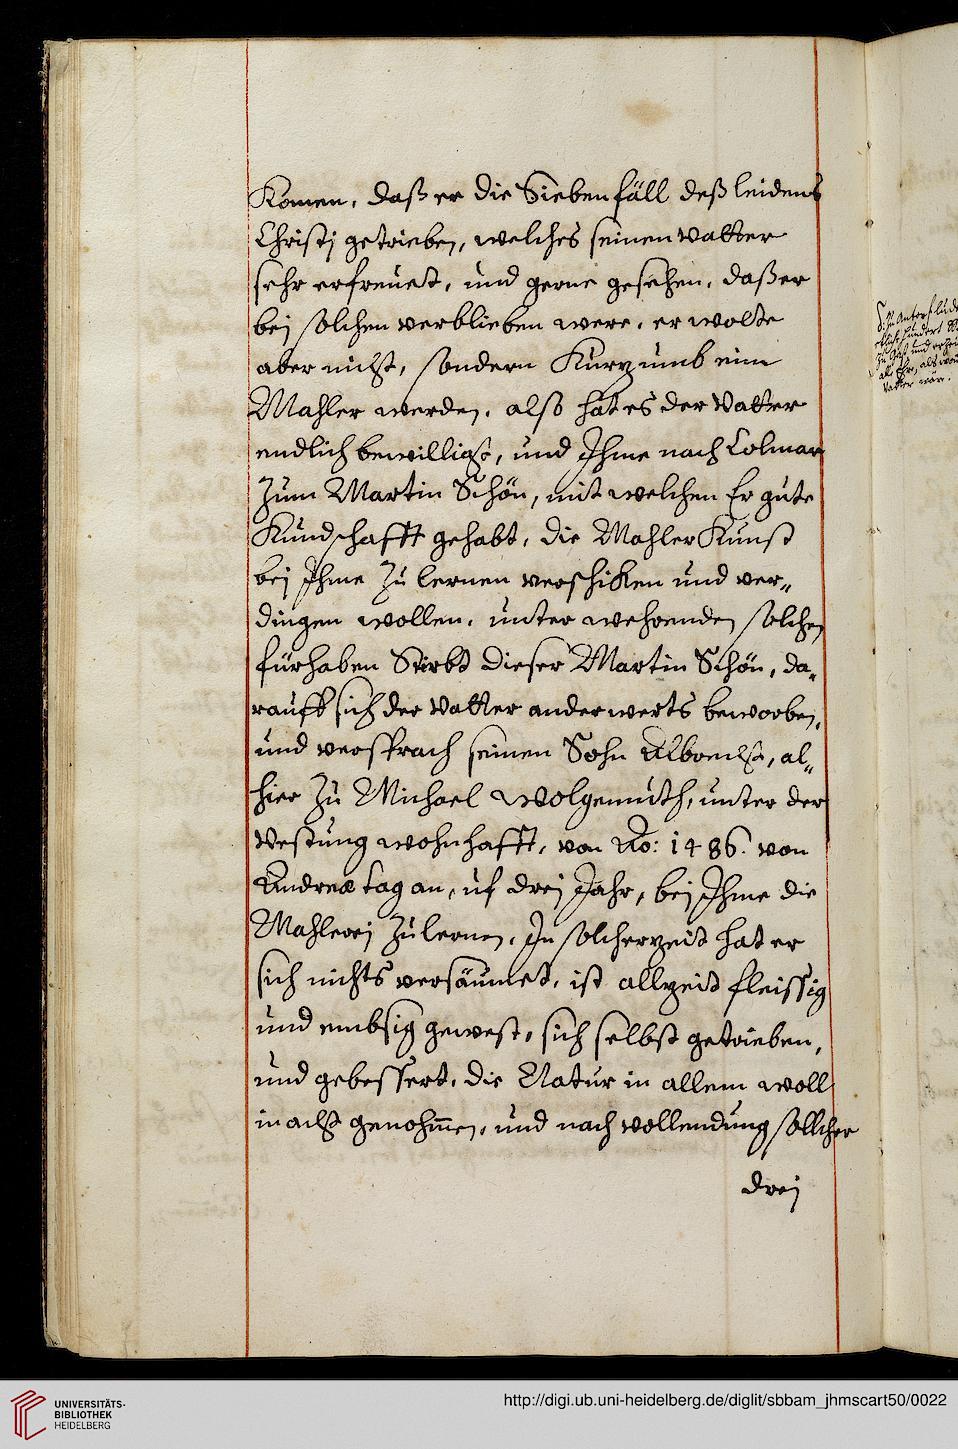 Komen, daß er die Sieben fäll deß leidens
Christj getrieben, welches seinen Vatter
sehr erfreuet, und gerne gesehen, daß er
bej solchen verblieben were, er wolte
aber nicht, sondern Kurzumb ein
Mahler werden, also hat es der Vatter
endlich bewilligt, und Ihme nach Colmar
zum Martin Schön, mit welchen Er gute
Kundschafft gehabt, die Mahler Kunst
bej Ihme zu lernen verschiken und ver„
dingen wollen, unter wehrenden solchen
fürhaben Stirbt dieser Martin Schön, da„
rauff sich der Vatter anderwerts beworben,
und versprach seinen Sohn Albrecht, al„
hier zu Michael Wolgemuth, unter der
Vestung wohnhafft, von Ao: 1486. von
Andreæ tag an, uf drej Jahr, bej Ihme die
Mahlerej zu lernen, In solcher zeit hat er
sich nichts versäumet, ist allzeit fleissig
und embsig gewest, sich selbst getrieben,
und gebessert, die Natur in allem woll
in acht genohmen, und nach vollendung sollcher
drej
hundert
zu Gast und
alls Ehr, als
Vatter wär.
UNIVERSITÄTS-
BIBLIOTHEK
HEIDELBERG
http://digi.ub.uni-heidelberg.de/diglit/sbbam_jhmscart50/0022